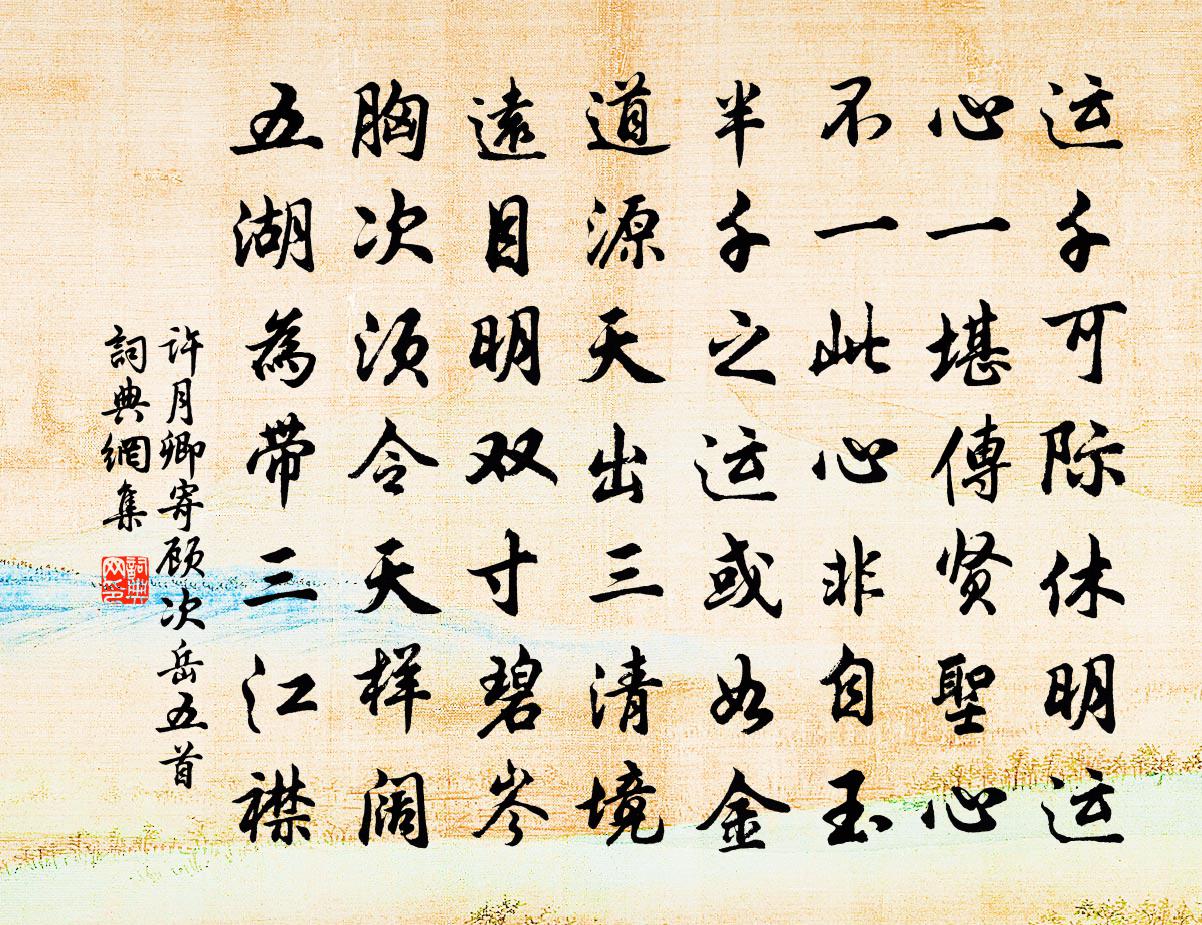 运千可际休明运
心一堪傳贤聖心
不一此心非自玉
半千之运或如金
道源天出三清境
遠目明双寸碧岑
胸次须令天样阔
五湖為带三江襟
许月卿寄顾次岳五首
詞典網集
詞典网印